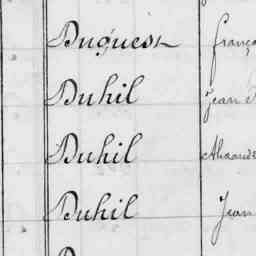 Duquesn franço
Duhil Jean
Duhil Alexand
Duhil Jean